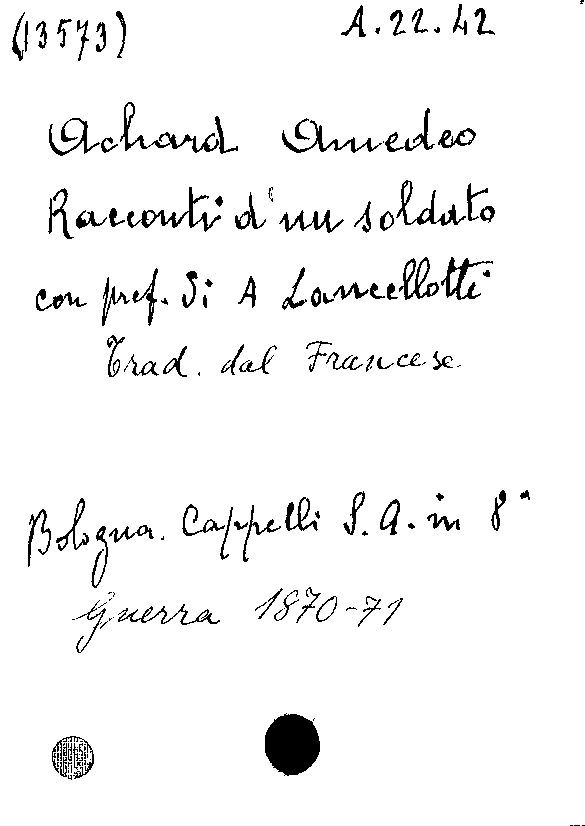 (13573) A.22.42
Achard Amedeo
Racconti d'un soldato
con pref. di A Lancellotti
Trad. dal Francese
Bologna. Cappelli S. A. in 8°
Guerra 1870-71